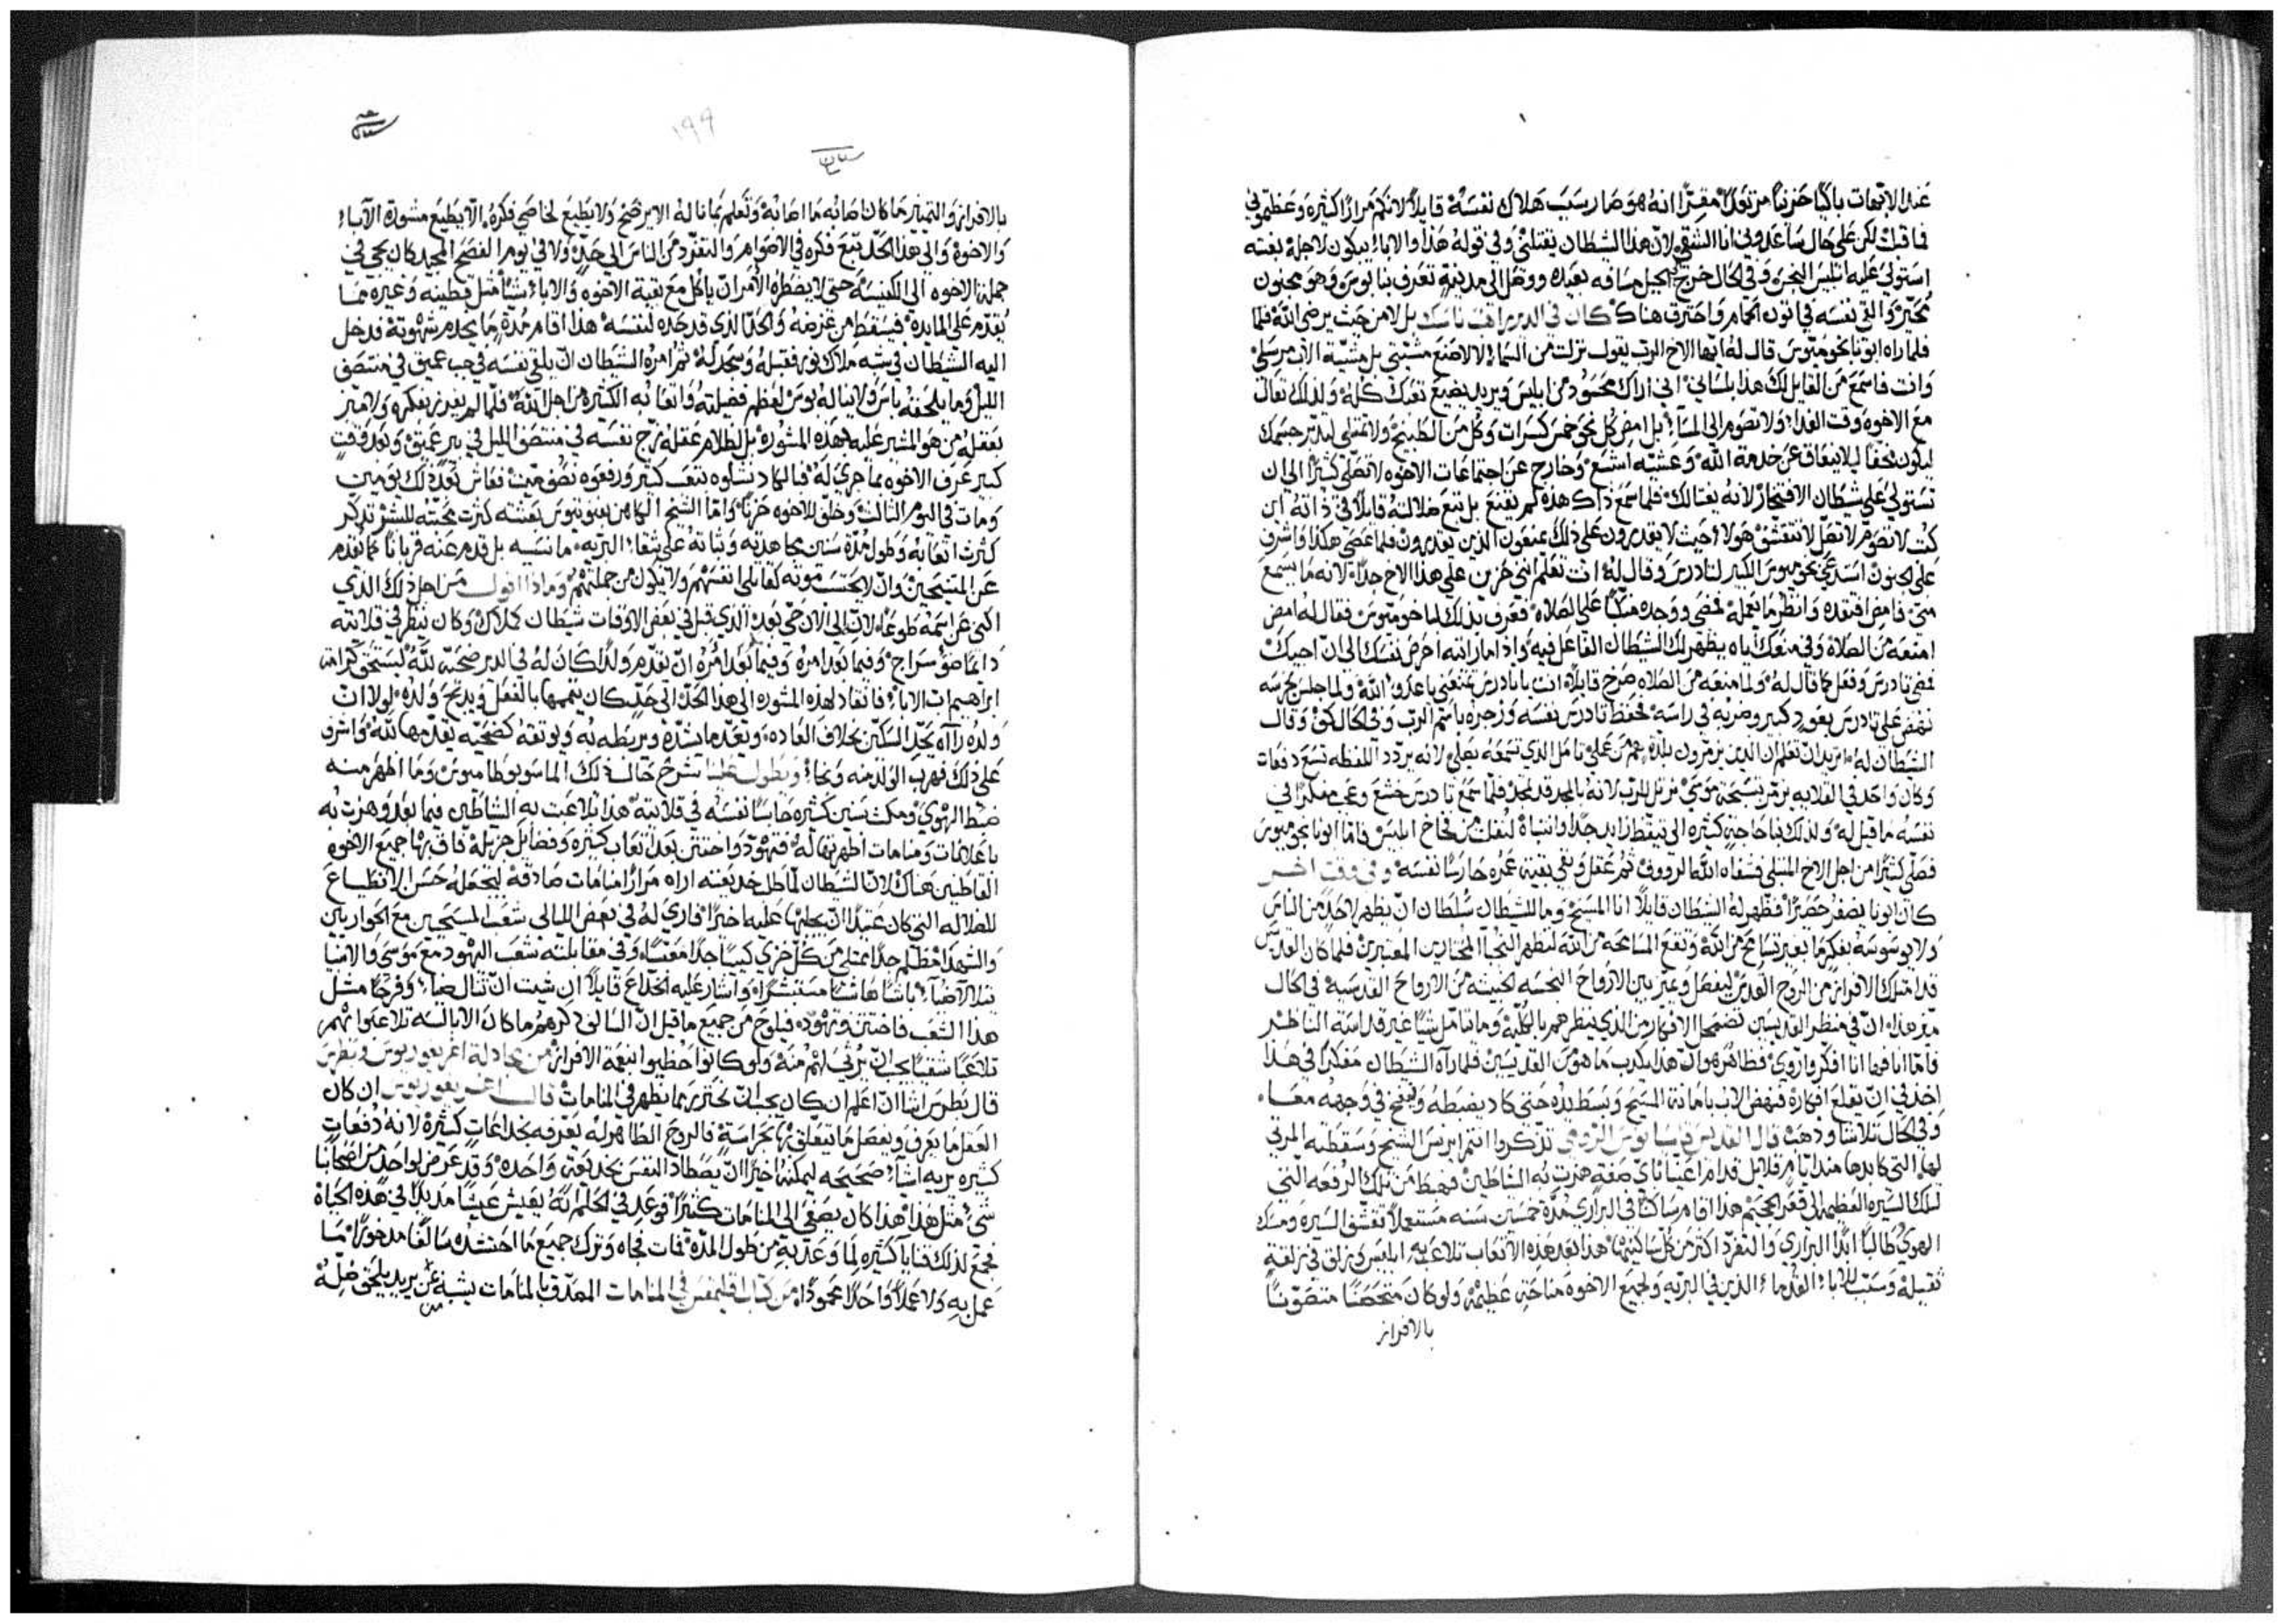 عند الاباهات باكيًا حزينًا مقرًا انه هو صار سبب هلاك نفسه قايلًا لانكم مرارًا كثيره وعظتموني
فما قبلت لكن على حال ساعدوني انا الشقي لان هذا الشيطان يقتلني وفي قوله هذا والاباء يبكون لاجله بغته
استولى عليه ابليس النجس وفي الحال خرج الجبل مسافه بعيده ووصل الى مدينة تعرف بنابوس وهو مجنون
متحير والقى نفسه في اتون الحمام واحترق هناك كان في الدير راهب ناسك بل لا من حيث يرضي الله فلما
فلما راه ابونا بخوميوس قال له ايها الاخ الرب يقول نزلت من السماء لا لاصنع مشيتي بل مشية الاب مرسلي
وانت فاسمع من القايل لك هذا بلساني اني اراك محسود من ابليس ويريد يضيع تعبك كله ولذلك تعال
مع الاخوه وقت الغدا ولا تصوم الى المساء بل امض كل نحو خمس كسرات وكل من الطبيخ ولا تمتلي ليلا تترك جسمك
ليكون نحفًا ليلا يعاق عن خدمة الله وعشيه اشبع وخارج عن اجتماعات الاخوه لا تصلي كثيرًا الى ان
تستولي على شيطان الافتخار لانه يغتالك فلما سمع ذاك هذه لم يقنع بل تبع ضلالته قايلًا في ذاته ان
كنت لا تصوم لا تصل لا تتقشف هولاء حيث لا يقدرون على ذلك يمنعون الذين يقدرون فلما عصي هكذا واشرف
على الجنون استدعى بخوميوس الكبير لتادرس وقال له انت تعلم انني حزين على هذا الاخ جدًا لانه ما يسمع
مني فامض افتقده وانظر ما يعمله فمضى ووجده منكبًا على الصلاه فعرف بذلك لبخوميوس فقال له امض
امنعه من الصلاه وفي منعك اياه يظهر لك الشيطان الفاعل فيه واذا ما رايته احرص نفسك الى ان اجيك
فمضى تادرس وفعل كما قال له ولما منعه من الصلاه صرخ قايلًا انت يا تادرس تمنعني يا عدو الله ولما جلس يحرسه
نهض على تادرس بعود كبير وضربه في راسه فحفظ تادرس نفسه وزجره باسم الرب وفي الحال كف وقال
الشيطان له اتريد ان تعلم ان الذين يرتلون بلذة هم من عملي تامل الذي تسمعه يصلي لانه يردد اللفظه تسع دفعات
وكان واحد في القلايه يرتل تسبحة موسى نرتل للرب لانه بالمجد قد تمجد فلما سمع تادرس خشع وعجب مفكرًا في
نفسه ما قيل له ولذلك بنا حاجة كثيره الى تيقظ زايد جدًا وانتباه لنفلت من فخاخ ابليس فاما ابونا بخوميوس
فصلى كثيرًا من اجل الاخ المبتلى فشفاه الله الرووف ثم عقل وبقي بقية عمره حارسًا نفسه وفي وقت اخر
كان ابونا يضفر حصيرًا فظهر له الشيطان قايلًا انا المسيح وما للشيطان سلطان ان يظهر لاحد من الناس
ولا يوسوسه بفكر ما بغير تسامح من الله وتقع المسامحه من الله ليظهر النجبا المختارين المعتبرين فلما كان القديس
قد امتلك الافراز من الروح القدس ليفصل ويميز بين الارواح النجسه الخبيثه من الارواح القدسيه في الحال
ميز هذا ان في منظر القديسين تضمحل الافكار من الذي ينظرهم بالكليه وما يتامل شيًا غير قداسة الناظر
فاما انا فها انا افكر واروي فظاهر هو ان هذا يكذب ما هو من القديسين فلما رآه الشيطان مفكرًا في هذا
اخذ في ان يقلع افكاره فنهض الاب بامانة المسيح وبسط يده حتى كاد يضبطه ونفخ في وجهه معًا
وفي الحال تلاشا وذهب قال القديس قسيانوس الرومي تذكروا انتم ايرنس الشيخ وسقطته المرثي
لها التي كابدها منذ ايام قلايل قدام اعيننا باي صفة هزت به الشياطين فهبط من تلك الرفعه التي
لتلك السيره العظيمه الى قعر الجحيم هذا اقام ساكنًا في البراري مدة خمسين سنه مستعملًا تقشف السيره ومسك
الهوى طالبًا ابدًا البراري والتفرد اكثر من كل ساكنيها هذا بعد هذه الاتعاب تلاعب به ابليس وزلق في زلقة
ثقيله وسبب للاباء القدماء الذين في البريه ولجميع الاخوه مناحة عظيمة ولو كان متحصنًا متصونًا
بالافراز
١٩٩
بالافراز والتمييز ما كان اصابه ما اصابه وتعلم بما ناله الا يرضخ ولا يطيع لخاصي فكره الا يطيع مشورة الآباء
والاخوه والى هذا الحد تبع فكره في الاصوام والتفرد من الناس الى حد ولا في يوم الفصح المجيد كان يجي في
جملة الاخوه الى الكنيسه حتى لا يضطره الامر ان ياكل مع بقية الاخوه والاباء شيًا مثل قطينه وغيره مما
يقدم على المايده فيسقط من غرضه والحد الذي قد حده لنفسه هذا اقام مدة ما يخدم شهوته فدخل
اليه الشيطان في شبه ملاك نور فقبله وسجد له ثم امره الشيطان ان يلقي نفسه في جب عميق في منتصف
الليل وما يلحقه باس ولا يناله بوس لعظم فضيلته واتعابه الكثيره من اجل الله فلما لم يفرز بفكره ولا ميز
بعقله من هو المشير عليه بهذه المشوره بل لظلام عقله زج نفسه في منتصف الليل في بير عميق وبعد وقت
كبير عرف الاخوه بما جرى له فبالكاد نشلوه بتعب كثير ورفعوه نصف ميت فعاش بعد ذلك يومين
ومات في اليوم الثالث وخلف للاخوه حزنًا واما الشيخ الكاهن بفنوتيوس بعشته كثرت محبته للبشر تذكر
كثرت اتعابه وطول مدة سنين مجاهدته وثباته على شقاء البريه ما نسيه بل قدم عنه قربانًا كما يقدم
عن المتنيحين وان لا يحتسب موته كقاتلي انفسهم ولا يكون من جملتهم وماذا اقول من اجل ذلك الذي
اكني عن اسمه طوعًا لانه الى الان حي بعد الذي قبل في بعض الاوقات شيطان كملاك وكان ينظر في قلايته
دايمًا ضو سراج وفيما بعد امره وفيما بعد امره ان يقدم ولدًا كان له في الدير ضحيه لله ليستحق كرامة
ابراهيم اب الاباء فانقاد لهذه المشوره الى هذا الحد الى حد كان يتممها بالفعل ويذبح ولده لولا ان
ولده رآه يحد السكين بخلاف العاده وتقدم اليه ليربطه به ويوثقه كضحيه يقدمها لله واشرف
على ذلك فهرب الولد منه ونجا ويطول علينا شرح حال ذلك الماسوبوطاميوس وما اظهر منه
ضبط الهوى ومكث سنين كثيره حابسًا نفسه في قلايته هذا تلاعبت به الشياطين فيما بعد وهزت به
باعلانات ومنامات اظهرتها له فتهود واختتن بعد اتعاب كثيره وفضايل جزيله فاق بها جميع الاخوه
القاطنين هناك لان الشيطان لما طلب خديعته اراه مرارًا منامات صادقه ليجعله حسن الانطباع
للضلاله التي كان عتيدًا ان يجلبها عليه اخيرًا فاري له في بعض الليالي شعب المسيحيين مع الحواريين
والشهدا مظلم جدًا ممتلي من كل خزي كيبًا جدًا معبسًا وفي مقابلته شعب اليهود مع موسى والانبيا
يتلالا ضياء باشًا هاشًا مستبشرًا واشار عليه الخداع قايلًا ان شيت ان تنال ضياء وفرحًا مثل
هذا الشعب فاختتن وتهود فيلوح من جميع ما قيل ان السالف ذكرهم ما كان الابالسه تلاعبوا بهم
تلاعبًا شقيًا يجب ان يرثى لهم منه ولو كانوا حظيوا بنعمة الافراز من مجادلة اغريغوريوس وبطرس
قال بطرس اشا ان اعلم ان كان يجب ان نحترز مما يظهر في المنامات قال اغريغوريوس ان كان
العقل ما يعرف ويفصل ما يتعلق بها بحراسة فالروح الظاهر له يغرقه بخداعات كثيره لانه دفعات
كثيره يريه اشياء صحيحه ليمكنه اخيرًا ان يصطاد النفس بخديعة واحده وقد عرض لواحد من اصحابنا
شي مثل هذا هذا كان يصغي الى المنامات كثيرًا فوعد في الحلم انه يعيش عيشًا مديدًا في هذه الحياة
فجمع لذلك قنايا كثيره لما وعد به من طول المده فمات فجاه وترك جميع ما احتشده سالفًا مدخورًا مما
عمل به ولا عملًا واحدًا محمودًا من كتاب اقليمقس في المنامات المصدق بالمنامات يشبه من يريد يلحق ظله